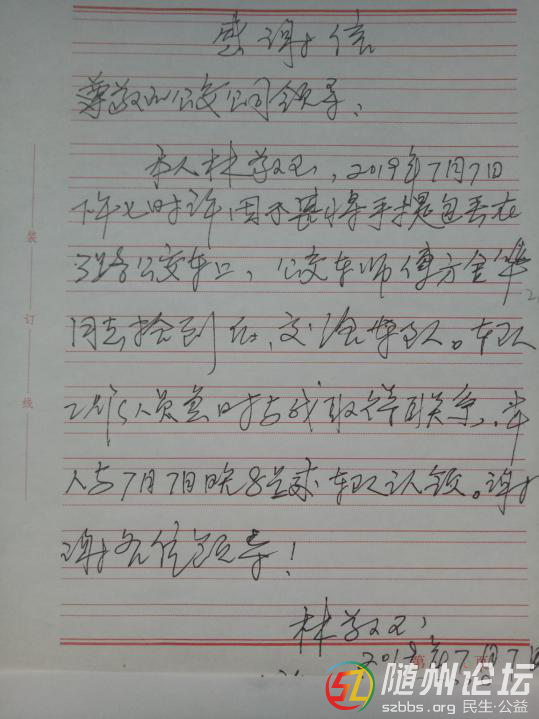 感谢信
尊敬的公交公司领导：
本人林敬 ，2019年7月7日
下午七时许，因不慎将手提包丢在
3路公交车上，公交车师傅方金华
同志捡到后，交给车队。车队
工作人员急时与我取得联系，本
人与7月7日晚8 来车队认领。谢
谢各位领导！
林敬
2019年7月7日
装
订
线
随州论坛
szbbs.org 民生·公益